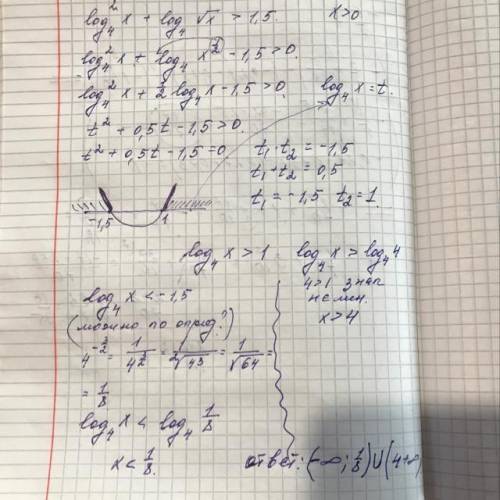 log₄²x + log₄√x > 1,5.   x>0
log₄²x + log₄ x^(1/2) - 1,5>0.
log₄²x + 1/2 log₄x - 1,5>0.   log₄x = t.
t² + 0,5t - 1,5>0.
t² + 0,5t - 1,5=0.
t₁·t₂ = -1,5
t₁+t₂ = 0,5
t₁ = -1,5   t₂=1.
-1,5   1
log₄x > 1   log₄x > log₄4
4>1 знак
не мен.
x>4
log₄x < -1,5
(можно по опред?)
4^(-3/2) = 1/4^(3/2) = 1/²√4³ = 1/√64 =
= 1/8
log₄x < log₄ 1/8
x< 1/8.
ответ: (-∞; 1/8)U(4+∞)